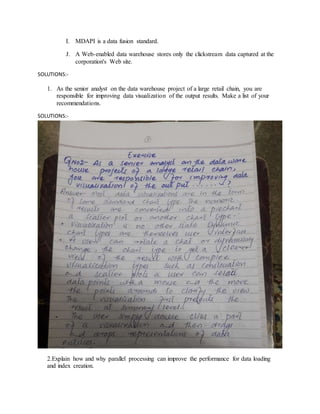 I. MDAPI is a data fusion standard.
J. A Web-enabled data warehouse stores only the clickstream data captured at the
corporation's Web site.
SOLUTIONS:-
1. As the senior analyst on the data warehouse project of a large retail chain, you are
responsible for improving data visualization of the output results. Make a list of your
recommendations.
SOLUTIONS:-
Exercise
QNo2- As a senior analyst on the data ware
house projects of a large retail chain,
you are responsible for improving data
visualization of the out put ......?
Answer Most data visualizations are in the form
of some standard chart type. The numeric
results are converted into a piechart
a scatter plot or another chart type.
• Visualization is no other static
chart types are user interface.
• A user can rotate a chat or
change the chart type to get a clearer
view of the result with complex
visualization types such as constellation
and scatter plots a user can select
data points with a mouse and the move
the points around to clarify the view.
The visualization first presents the
result at summary level.
• The user simply double clicks a part
of a visualization and then drags
and drops representations of data
entities.
2.Explain how and why parallel processing can improve the performance for data loading
and index creation.